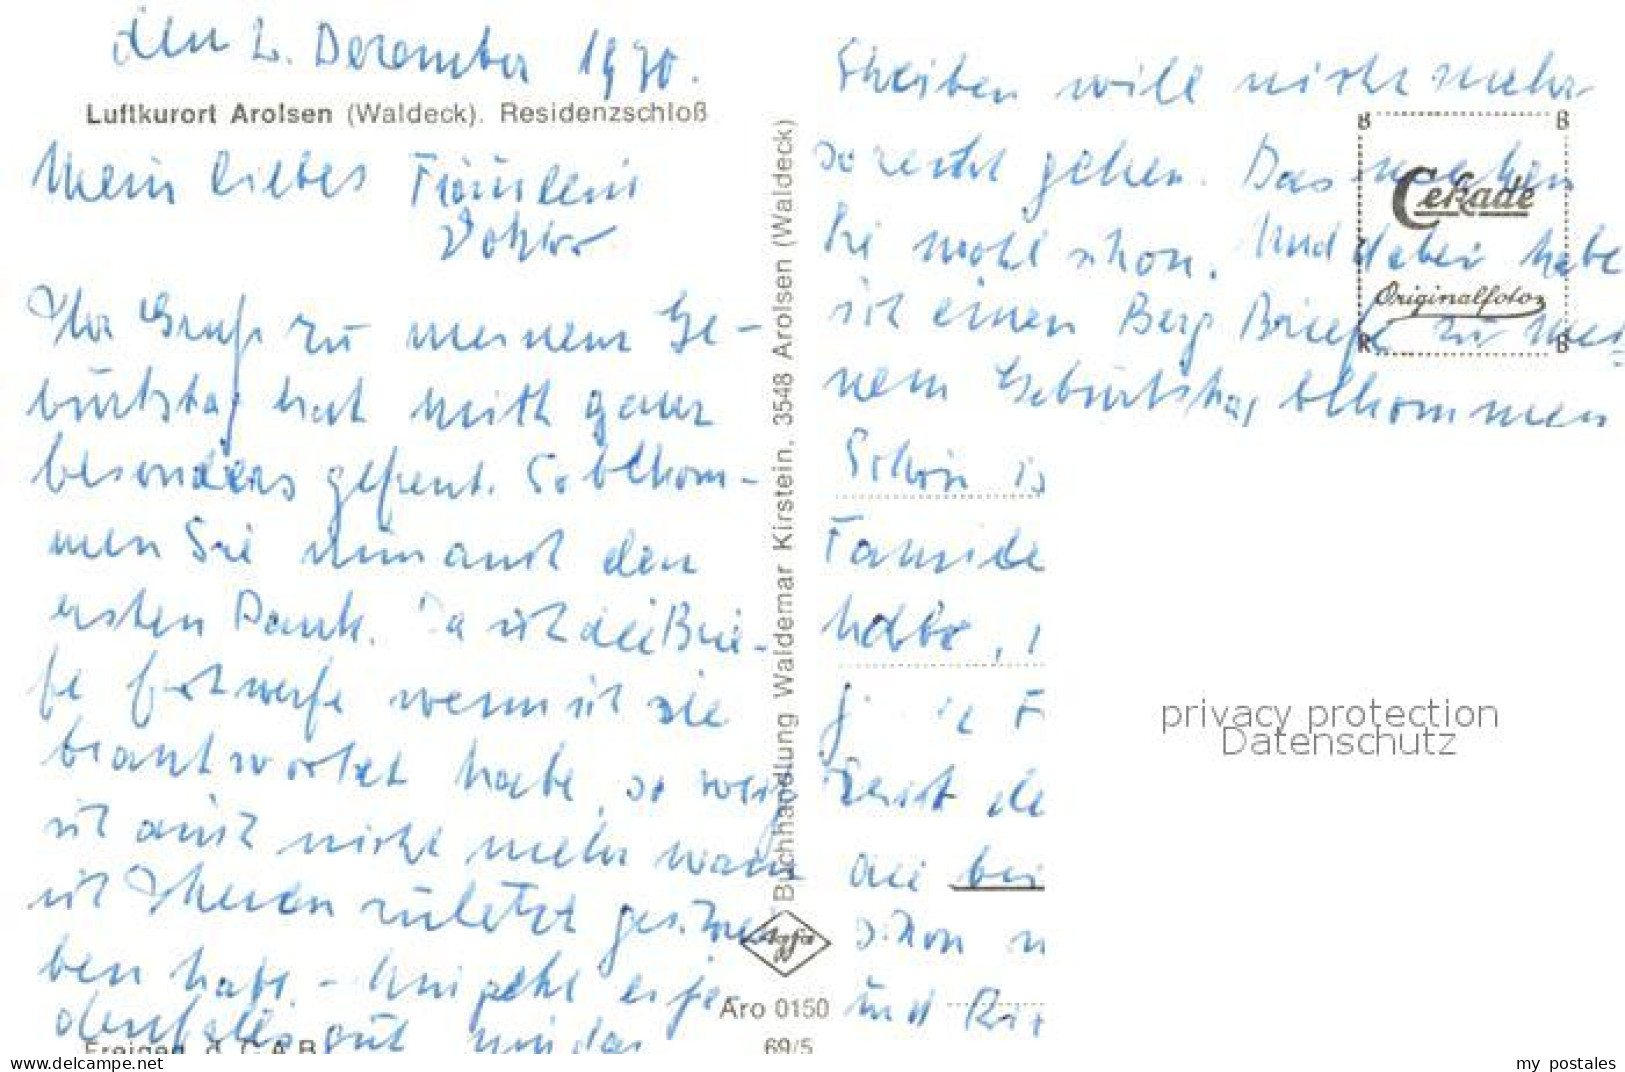 den 2. Dezember 1970.
Luftkurort Arolsen (Waldeck). Residenzschloß
Mein liebes Fräulein
Ihr Gruß zu meinem Ge-
burtstag hat mich ganz
besonders gefreut. So bekom-
men Sie nun auch den
ersten Dank. Da ich die Brie-
fe fortwerfe wenn ich sie
beantwortet habe, so weiß
ich auch nicht mehr wann
ich Ihnen zuletzt geschrie
ben habe. - Mir geht es je-
denfalls gut nur das
Freigeg. d. C.A.B.
Buchhandlung Waldemar Kirstein, 3548 Arolsen (Waldeck)
Agfa
Aro 0150
69/5
Schreiben will nicht mehr
so recht gehen. Das machen
Sie wohl schon. Und dabei habe
ich einen Berg Briefe zu mei=
nem Geburtstag bekommen
Schön is
Familie
habe,
die bei
schon
und
Cekade
Originalfoto
privacy protection
Datenschutz
my postales